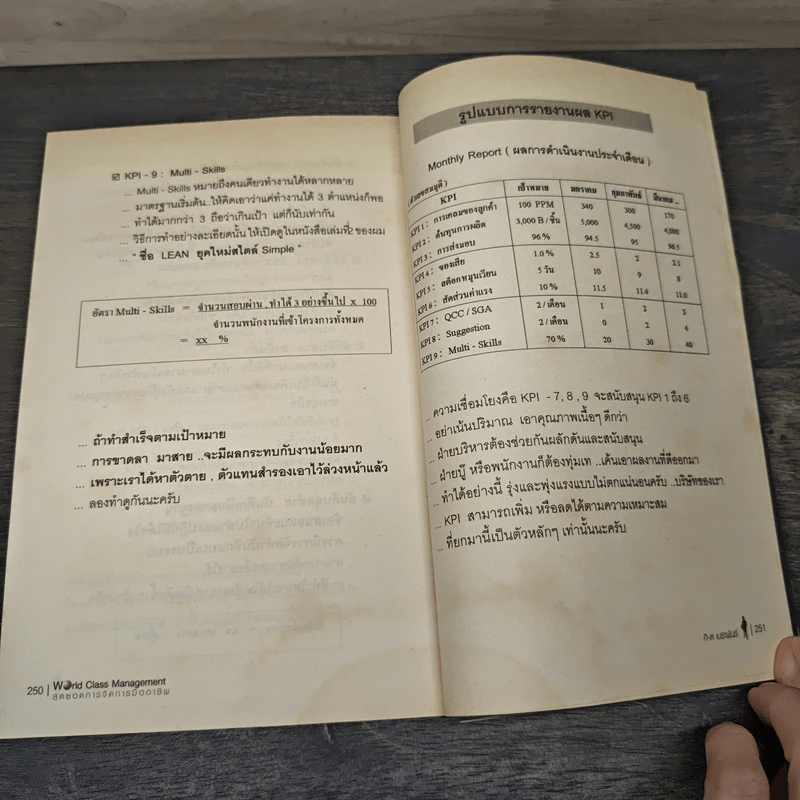 ☑ KPI - 9 : Multi - Skills
... Multi - Skills หมายถึงคนเดียวทำงานได้หลากหลาย
... มาตรฐานเริ่มต้น..ให้คิดเอาว่าแค่ทำงานได้ 3 ตำแหน่งก็พอ
... ทำได้มากกว่า 3 ถือว่าเกินเป้า แต่ก็นับเท่ากัน
... วิธีการทำอย่างละเอียดนั้น ให้เปิดดูในหนังสือเล่มที่2 ของผม
... " ชื่อ LEAN ยุคใหม่สไตล์ Simple "
อัตรา Multi - Skills = จำนวนสอบผ่าน , ทำได้ 3 อย่างขึ้นไป x 100
จำนวนพนักงานที่เข้าโครงการทั้งหมด
= xx %
... ถ้าทำสำเร็จตามเป้าหมาย
... การขาดลา มาสาย ..จะมีผลกระทบกับงานน้อยมาก
... เพราะเราได้หาตัวตาย , ตัวแทนสำรองเอาไว้ล่วงหน้าแล้ว
... ลองทำดูกันนะครับ
250 | World Class Management
สุดยอดการจัดการมืออาชีพ
รูปแบบการรายงานผล KPI
Monthly Report ( ผลการดำเนินงานประจำเดือน )
( ตัวเลขสมมุติ )
KPI เป้าหมาย มกราคม กุมภาพันธ์ มีนาคม ..
KPI 1 : การเคลมของลูกค้า 100 PPM 340 300 170
KPI 2 : ต้นทุนการผลิต 3,000 B / ชิ้น 5,000 4,500 4,000
KPI 3 : การส่งมอบ 96 % 94.5 95 96.5
KPI 4 : ของเสีย 1.0 % 2.5 2 2.1
KPI 5 : สต็อกหมุนเวียน 5 วัน 10 9 8
KPI 6 : สัดส่วนค่าแรง 10 % 11.5 11.4 11.0
KPI 7 : QCC / SGA 2 / เดือน 1 2 3
KPI 8 : Suggestion 2 / เดือน 0 2 4
KPI 9 : Multi - Skills 70 % 20 30 40
... ความเชื่อมโยงคือ KPI - 7, 8 , 9 จะสนับสนุน KPI 1 ถึง 6
... อย่าเน้นปริมาณ เอาคุณภาพเนื้อๆ ดีกว่า
... ฝ่ายบริหารต้องช่วยกันผลักดันและสนับสนุน
... ฝ่ายบู๊ หรือพนักงานก็ต้องทุ่มเท ..เค้นเอาผลงานที่ดีออกมา
... ทำได้อย่างนี้ รุ่งและพุ่งแรงแบบไม่ตกแน่นอนครับ ..บริษัทของเรา
... KPI สามารถเพิ่ม หรือลดได้ตามความเหมาะสม
... ที่ยกมานี้เป็นตัวหลักๆ เท่านั้นนะครับ
| 251